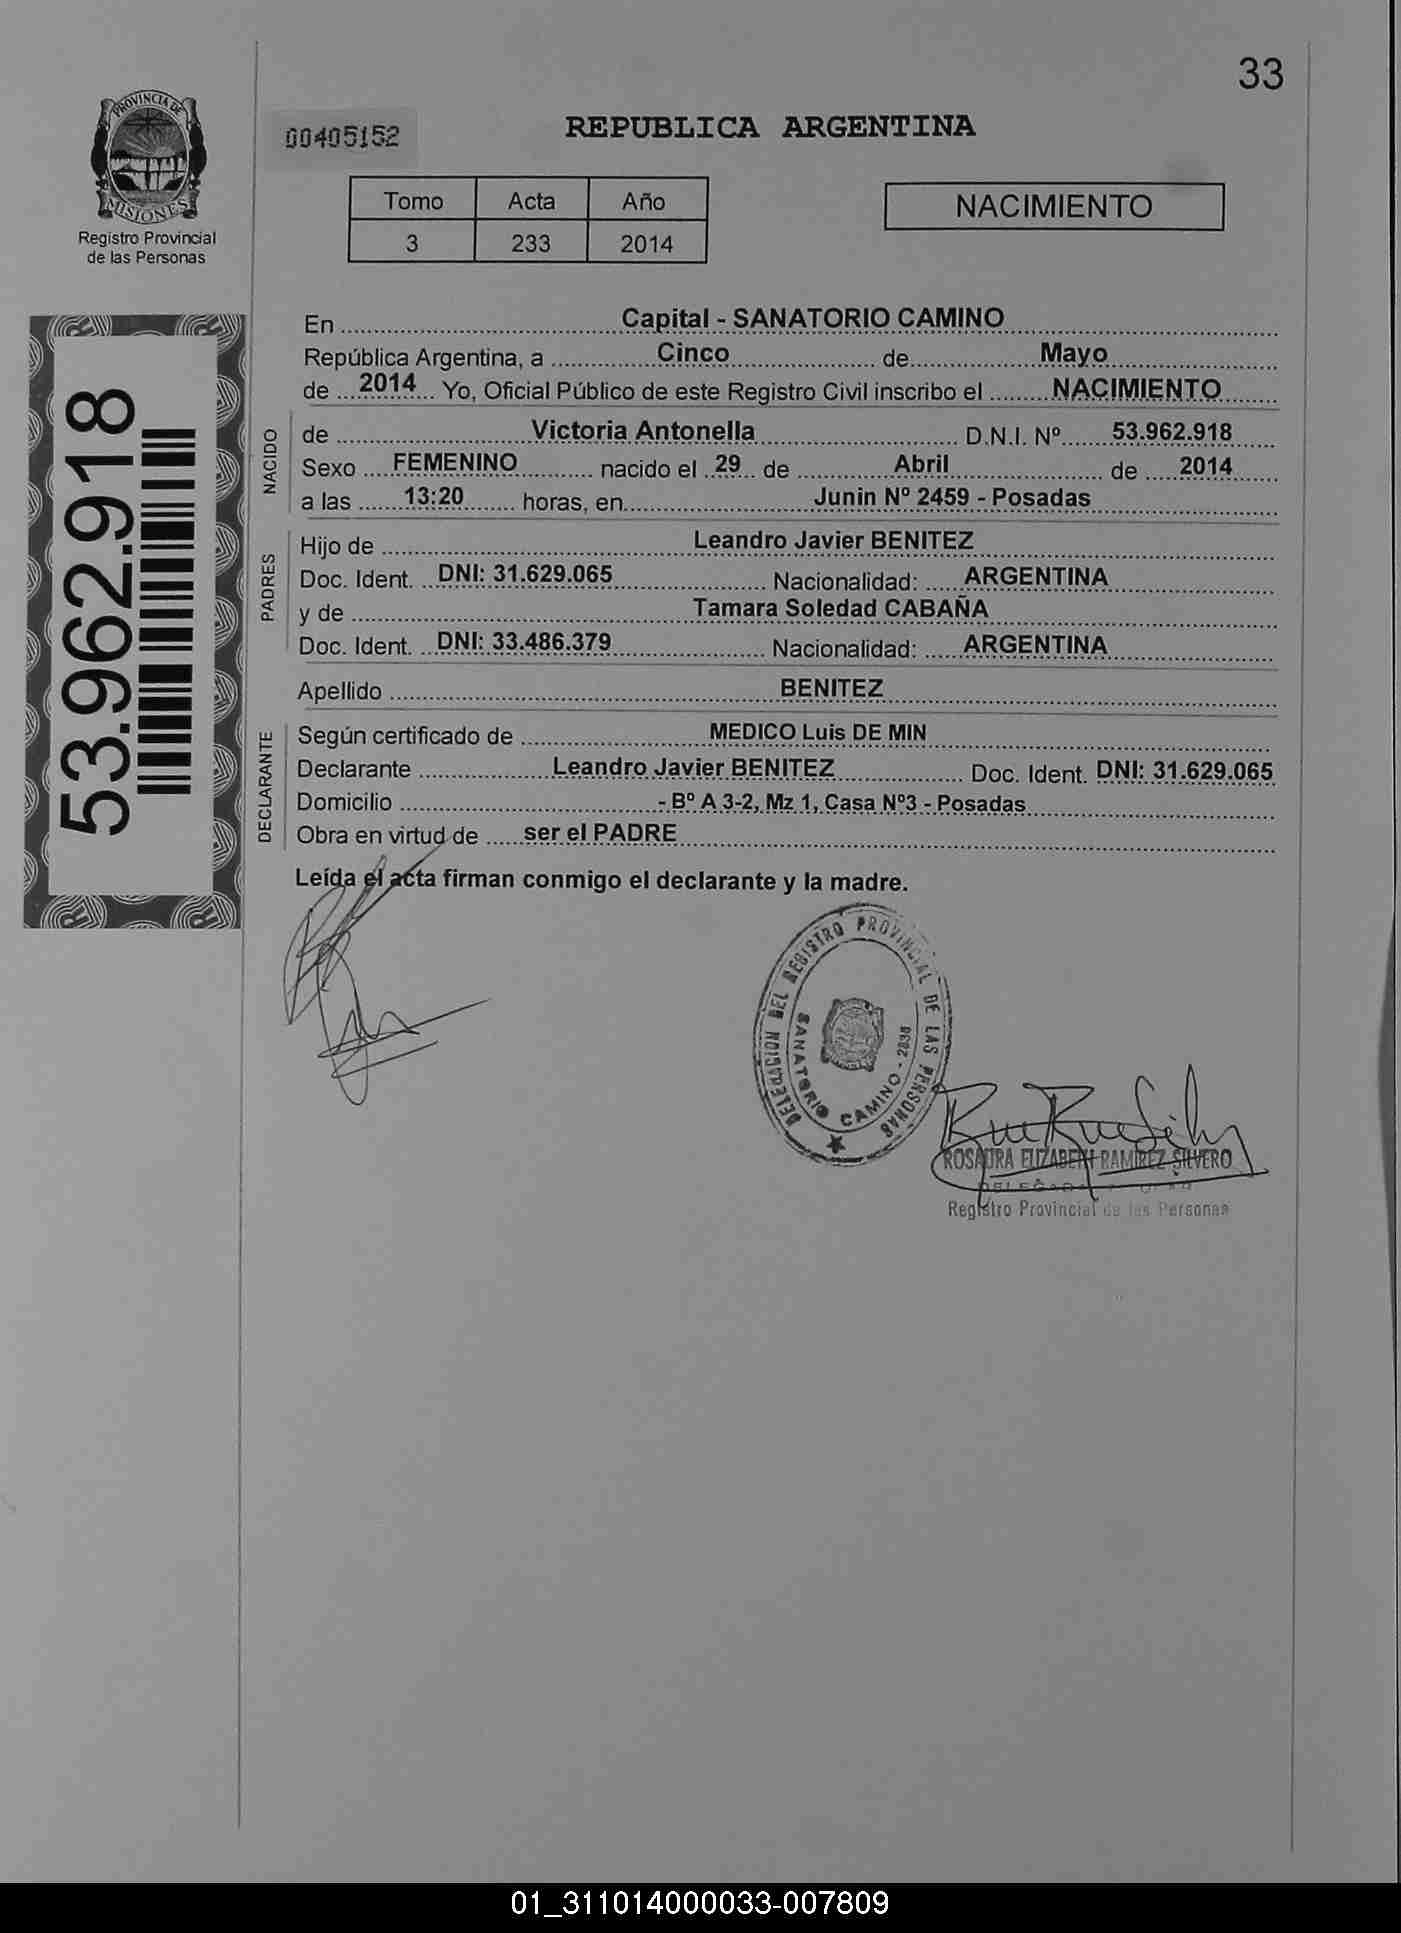 33
PROVINCIA DE
MISIONES
Registro Provincial
de las Personas
00405152
REPUBLICA ARGENTINA
Tomo Acta Año
3 233 2014
NACIMIENTO
53.962.918
En Capital - SANATORIO CAMINO
República Argentina, a Cinco de Mayo
de 2014 Yo, Oficial Público de este Registro Civil inscribo el NACIMIENTO
NACIDO
de Victoria Antonella D.N.I. Nº 53.962.918
Sexo FEMENINO nacido el 29 de Abril de 2014
a las 13:20 horas, en Junin Nº 2459 - Posadas
PADRES
Hijo de Leandro Javier BENITEZ
Doc. Ident. DNI: 31.629.065 Nacionalidad: ARGENTINA
y de Tamara Soledad CABAÑA
Doc. Ident. DNI: 33.486.379 Nacionalidad: ARGENTINA
Apellido BENITEZ
DECLARANTE
Según certificado de MEDICO Luis DE MIN
Declarante Leandro Javier BENITEZ Doc. Ident. DNI: 31.629.065
Domicilio - Bº A 3-2, Mz 1, Casa Nº3 - Posadas
Obra en virtud de ser el PADRE
Leída el acta firman conmigo el declarante y la madre.
DELEGACION DEL REGISTRO PROVINCIAL DE LAS PERSONAS
SANATORIO CAMINO - 2838
ROSAURA ELIZABETH RAMIREZ SILVERO
Registro Provincial de las Personas
01_311014000033-007809